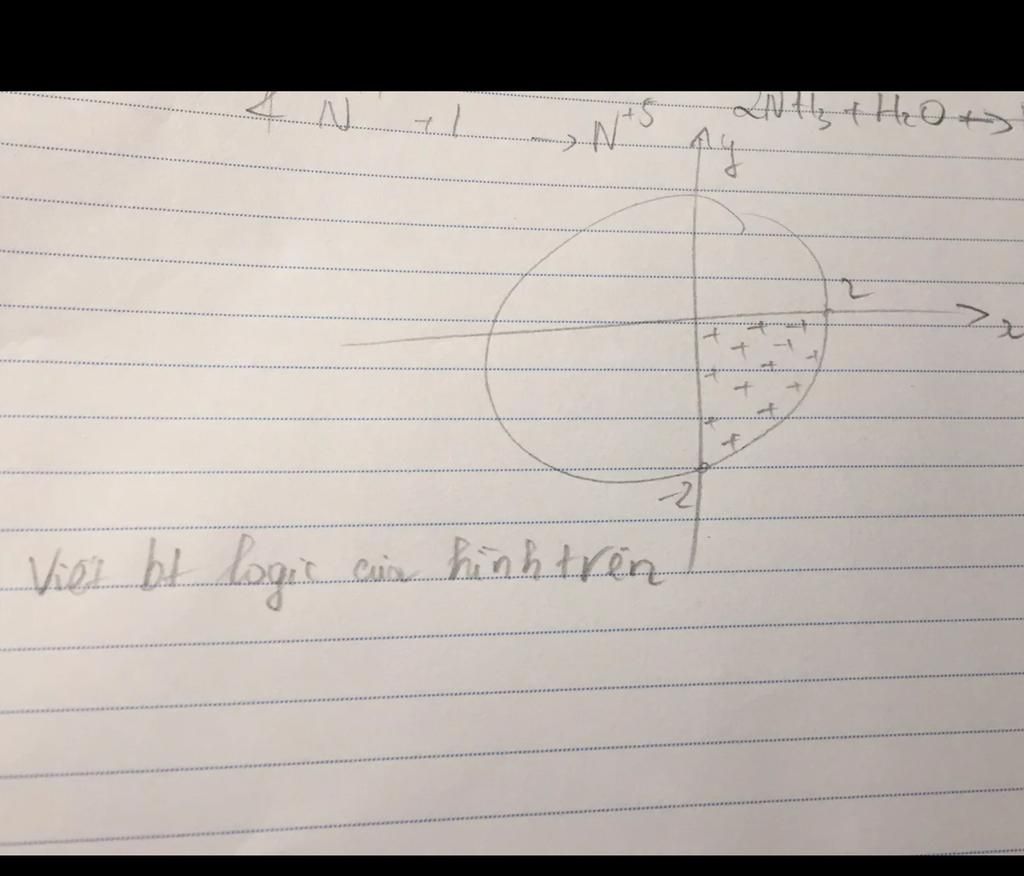 4 N +1 → N⁺⁵ 2NH₃ + H₂O ↔
y
2
x
-2
Viết bt logic của hình trên